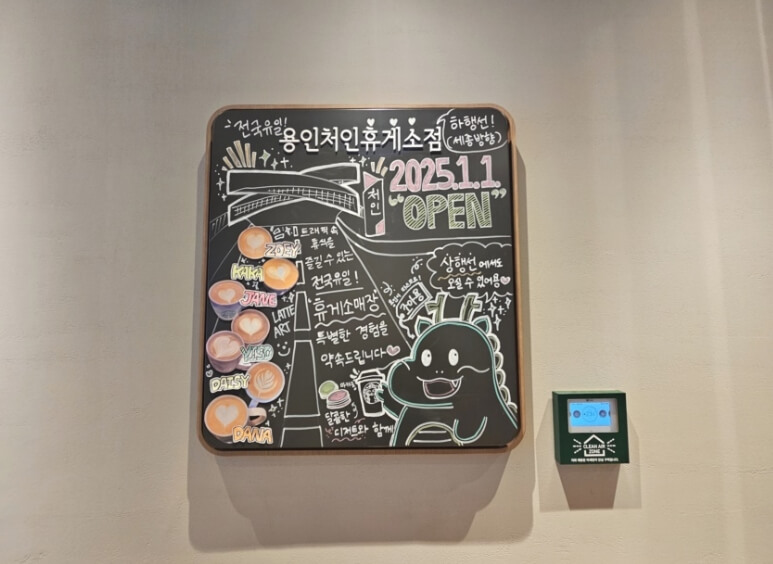 전국유일!
용인처인휴게소점
하행선!
(세종방향)
2025.1.1.
"OPEN"
처인
ZOEY
KAKA
JANE
LATTE
ART
DAISY
DANA
휴식을
즐길 수 있는
전국유일!
휴게소매장
특별한 경험을
약속드립니다
상행선에서도
오실 수 있어용
조아용
달콤한
디저트와 함께
CLEAN AIR
ZONE